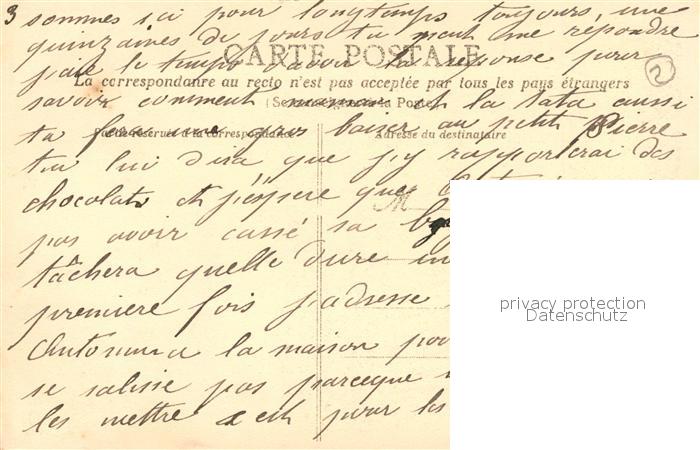 3 sommes ici pour longtemps toujours, une
quinzaines de jours tu peut me répondre
j'aie le temps d'avoir ta reponse pour
CARTE POSTALE
La correspondance au recto n'est pas acceptée par tous les pays étrangers
2
savoir comment maman et la tata aussi
(Se renseigner à la Poste)
tu fera une gros baiser au petit Pierre
Partie réservée à la correspondance
Adresse du destinataire
tu lui dira que j'y rapporterai des
chocolats et j'éspere que
M
pas avoir cassé sa
tâchera quelle dure
premiere fois j'adresse
a la maison
se salisse pas parceque
les mettre pour les
privacy protection
Datenschutz